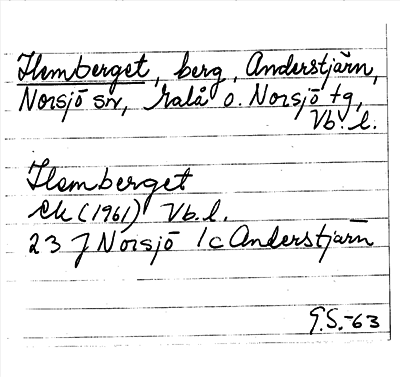 Hemberget, berg, Anderstjärn,
Norsjö sn, Malå o. Norsjö tg,
Vb. l.
Hemberget
Ek (1961) Vb. l.
23 J Norsjö 1c Anderstjärn
G.S.-63